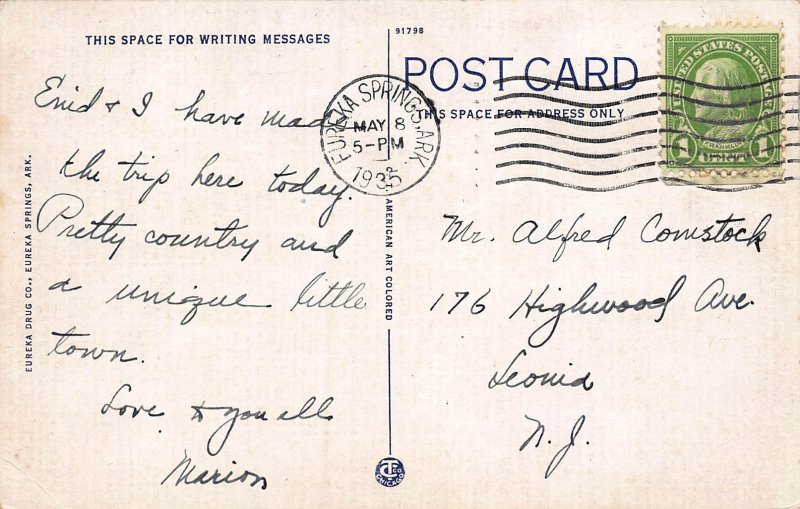 THIS SPACE FOR WRITING MESSAGES
Enid & I have made
the trip here today.
Pretty country and
a unique little
town.
Love to you all
Marion
EUREKA DRUG CO., EUREKA SPRINGS, ARK.
91798
POST CARD
THIS SPACE FOR ADDRESS ONLY
EUREKA SPRINGS, ARK.
MAY 8
5-PM
1935
UNITED STATES POSTAGE
FRANKLIN
1 CENT 1
Mr. Alfred Comstock
176 Highwood Ave.
Leonia
N. J.
AMERICAN ART COLORED
CT CO
CHICAGO